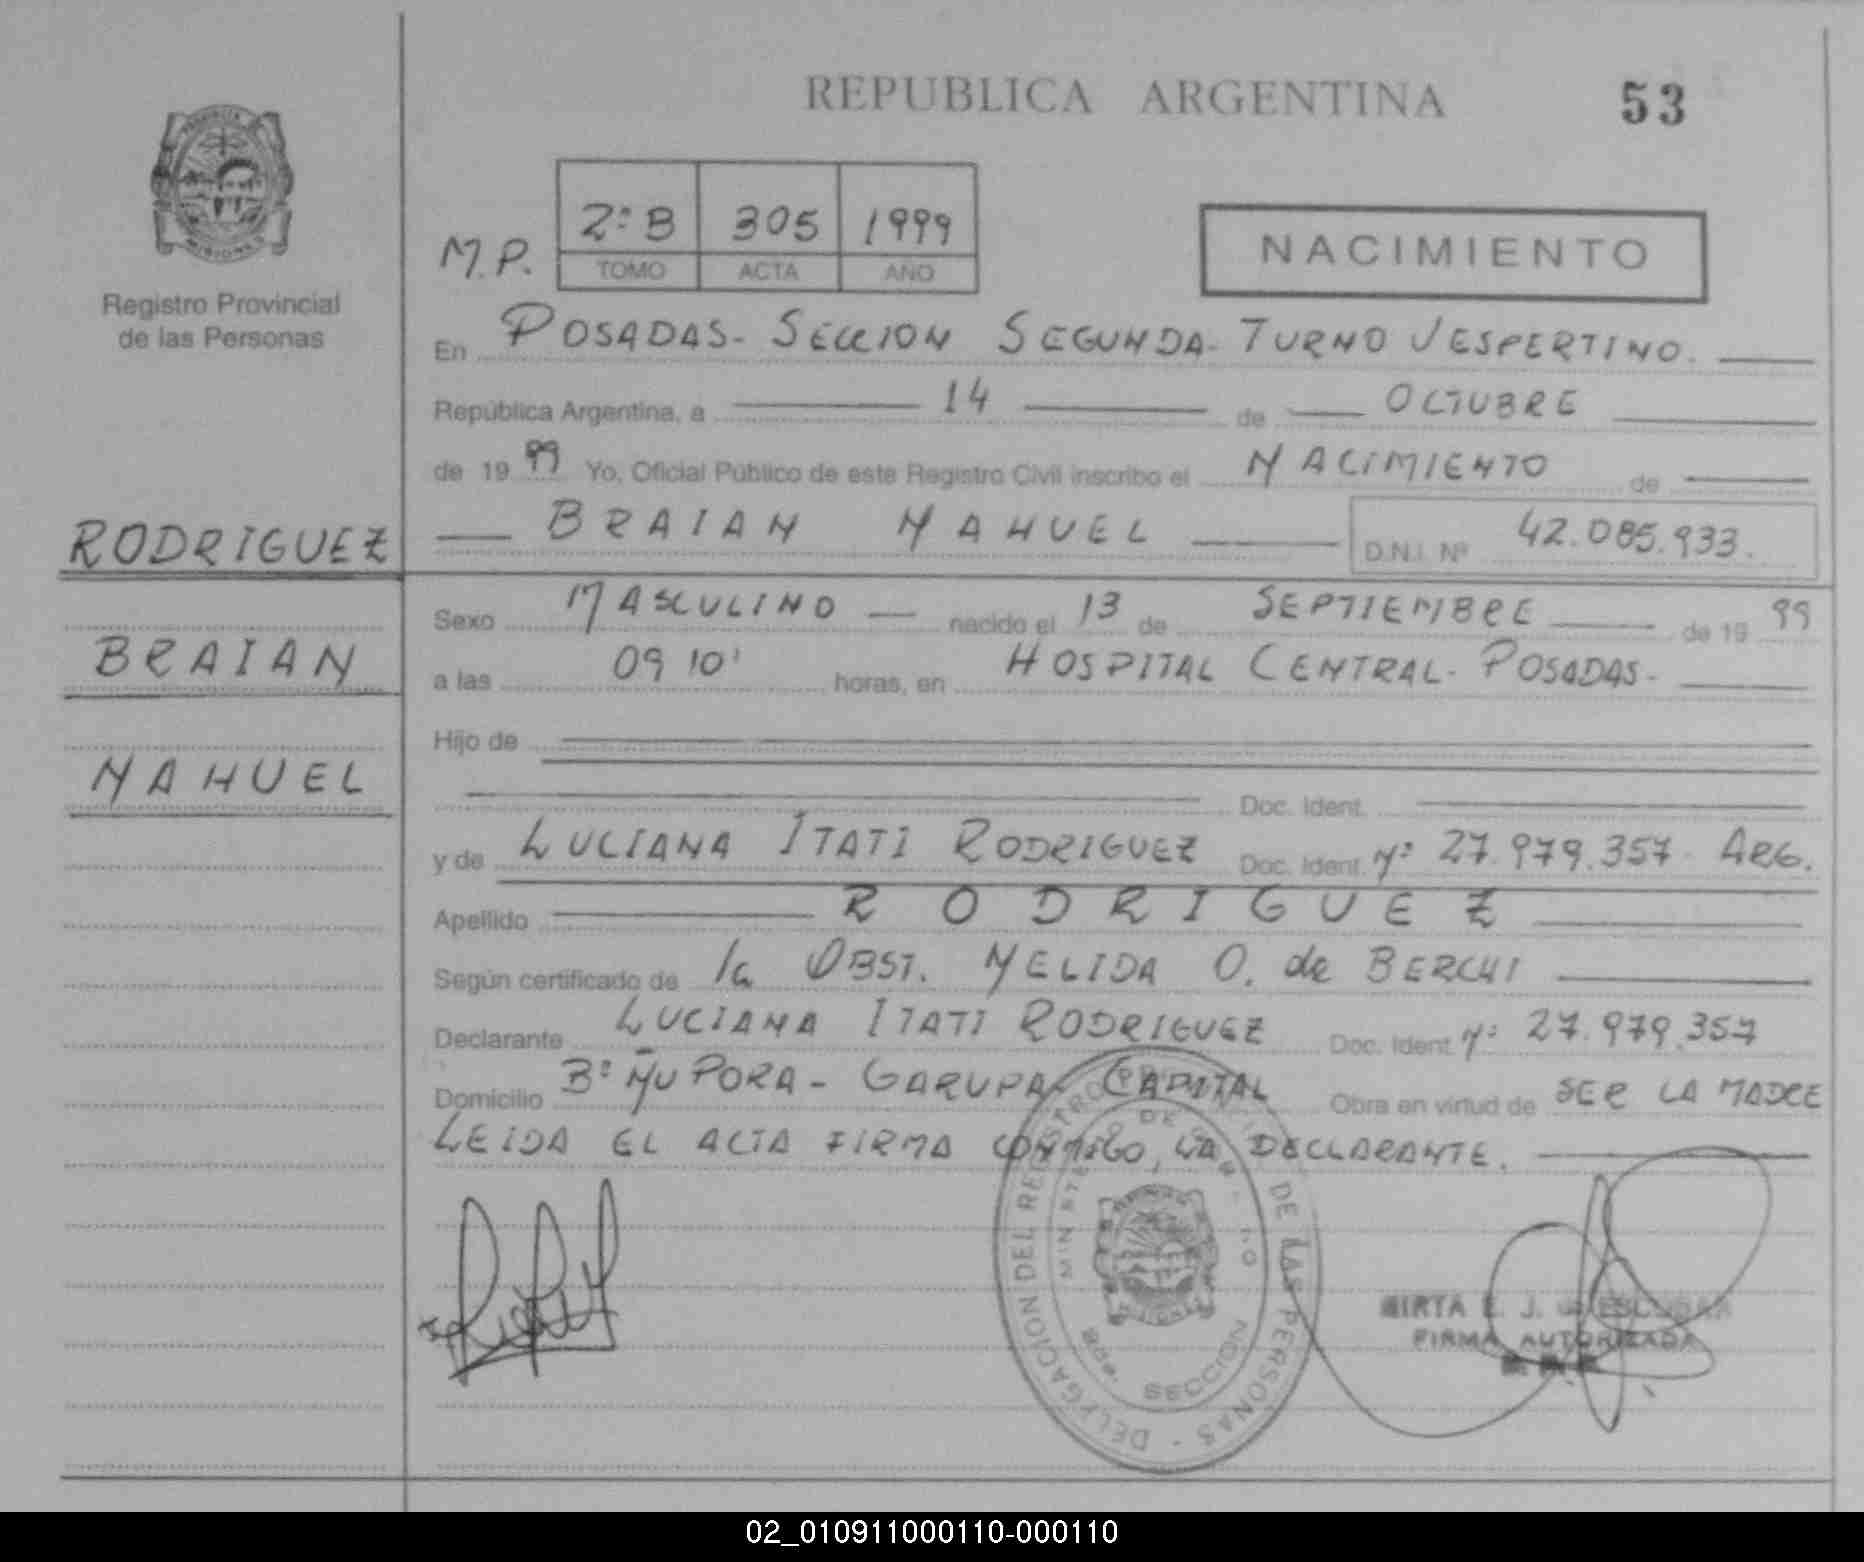 REPUBLICA ARGENTINA
53
PROVINCIA
MISIONES
Registro Provincial
de las Personas
M.P.
2º B 305 1999
TOMO ACTA AÑO
NACIMIENTO
En POSADAS - SECCION SEGUNDA - TURNO VESPERTINO.
República Argentina, a 14 de OCTUBRE
de 1999 Yo, Oficial Público de este Registro Civil inscribo el NACIMIENTO de
RODRIGUEZ
BRAIAN NAHUEL D.N.I. Nº 42.085.933.
Sexo MASCULINO nacido el 13 de SEPTIEMBRE de 1999
BRAIAN
a las 09 10' horas, en HOSPITAL CENTRAL - POSADAS -
Hijo de
NAHUEL
Doc. Ident.
y de LUCIANA ITATI RODRIGUEZ Doc. Ident. Nº 27.979.357 - ARG.
Apellido RODRIGUEZ
Según certificado de la OBST. NELIDA O. de BERCHI
Declarante LUCIANA ITATI RODRIGUEZ Doc. Ident. Nº 27.979.357
Domicilio Bº ÑU PORA - GARUPA - CAPITAL Obra en virtud de SER LA MADRE
LEIDA EL ACTA FIRMA CONMIGO, LA DECLARANTE.
DELEGACION DEL REGISTRO DE LAS PERSONAS
SECCION
MIRTA E. J. ESCOBAR
FIRMA AUTORIZADA
02_010911000110-000110